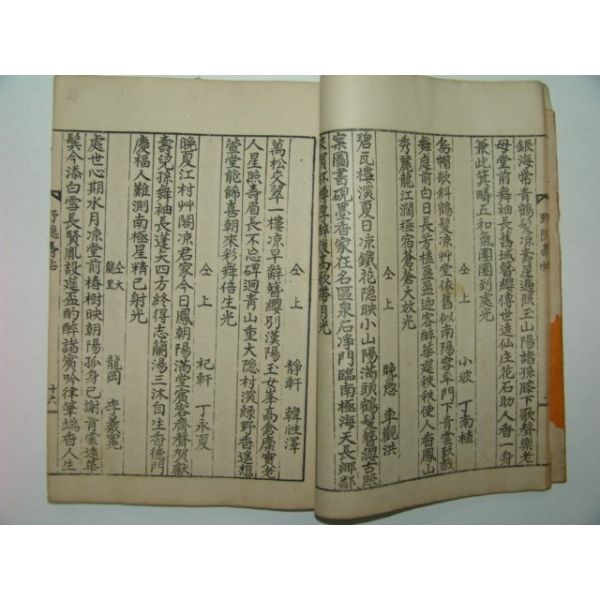 銀海常青鶴髮凉壽星遍照玉山陽諸孫膝下歌聲樂老
母堂前舞袖長舊域簪纓傳世遠仙庄花石助人香一身
兼此箕疇五和氣團團到處光
仝上 小坡 丁南植
烏帽欹斜鶴髮凉艸堂依舊似南陽客年門下青雲秋戱
舞庭前白日長芳樽盈盈迎客醉華筵秩秩使人香鳳山
秀麗龍江濶極宿蒼蒼大放光
仝上 晚愚 車觀洪
碧瓦樓深夏日凉鐵花隱映小山陽滿頭鶴髮簪纓古照
案圖書硯墨香家在名區泉石净門臨南極海天長鄉鄰
月光
仝上 靜軒 韓性澤
萬松交翠一樓凉早辭簪纓別漢陽玉女峯高倉廩實老
人星照壽眉長不忘碑迴青山重大隱村深綠野香遙想
萱堂能餙喜朝來彩舞倍生光
仝上 杞軒 丁永夏
晚夏江村艸閣凉君家今日鳳朝陽滿堂賓客齊聲賀獻
壽兒孫舞袖長蓬矢四方終得志蘭湯三沐自生香德門
慶福人難測南極星精已射光
仝大龍里 龍岡 李義冕
處世心期水月凉堂前椿樹映朝陽孤身已謝青雲遠華
鬂今添白雪長賢胤設進盃酌醉諸賓吟律筆端香人生
十六